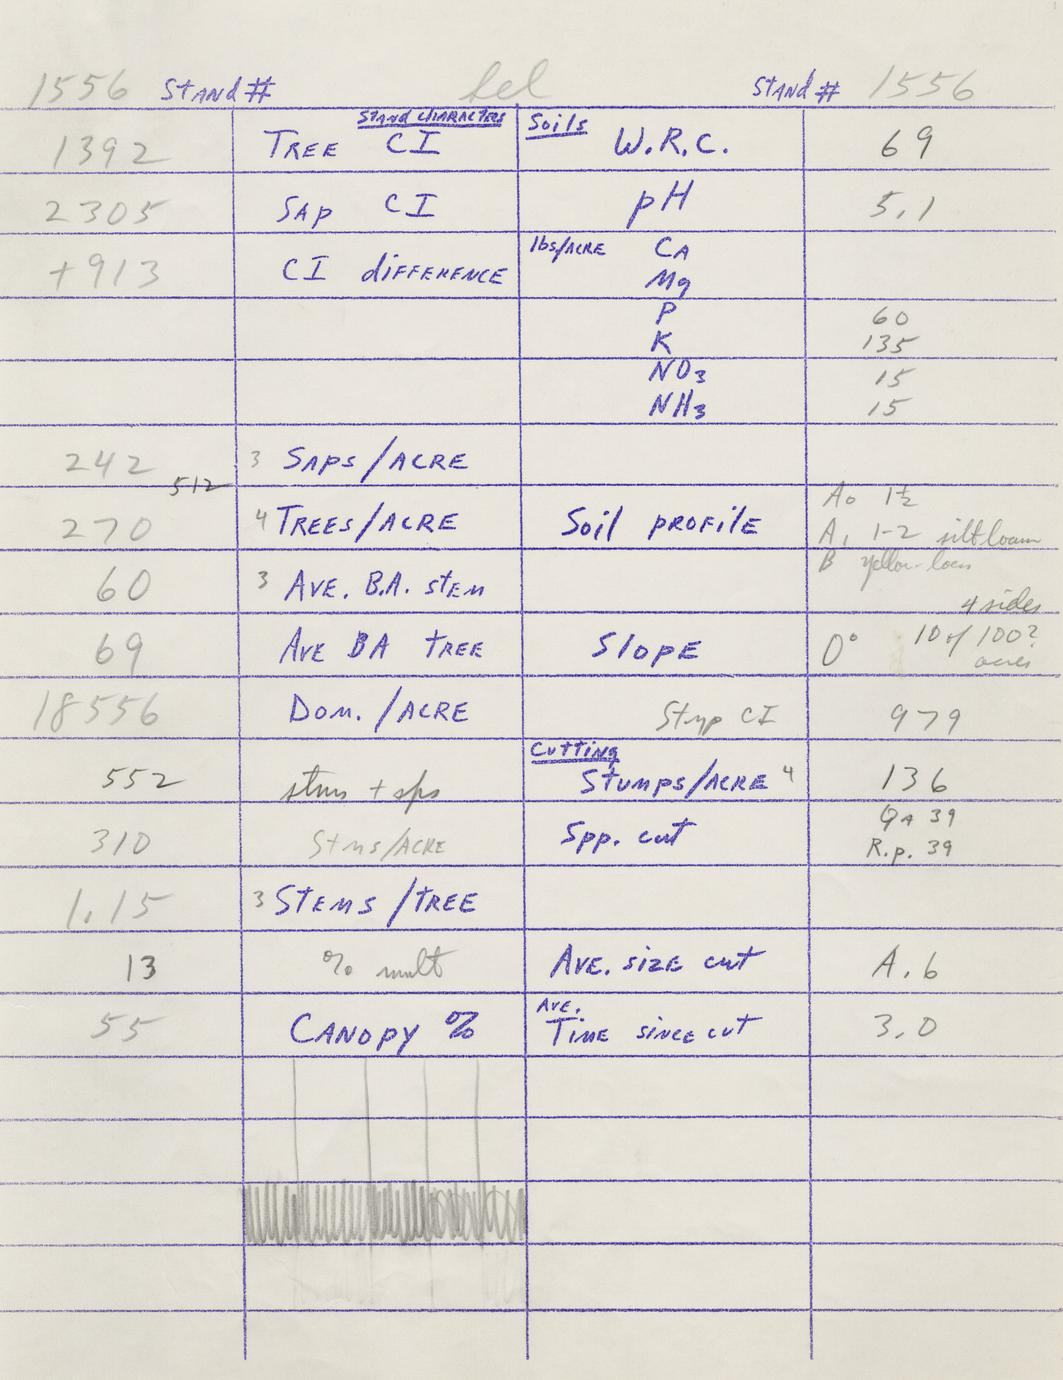 1556 STAND # Sel STAND # 1556
STAND CHARACTERS Soils
1392 TREE CI W.R.C. 69
2305 SAP CI pH 5.1
+913 CI diFFERENCE lbs/ACRE CA
Mg
P 60
K 135
NO3 15
NH3 15
242 3 SAPS/ACRE
512
270 4 TREES/ACRE Soil PROFilE A0 1½
A1 1-2 silt loam
60 3 AVE. B.A. STEM B yellow-loess
4 sides
69 AVE BA TREE SlOPE 0° 10 of 100?
acres
18556 DOM./ACRE Stmp CI 979
Cutting
552 stms + sps STUMPS/ACRE 4 136
310 Stms/ACRE Spp. cut QA 39
R.p. 39
1.15 3 STEMS/TREE
13 % mult AVE. SIZE CUT A.6
55 CANOPY % AVE.
TIME SINCE CUT 3.0